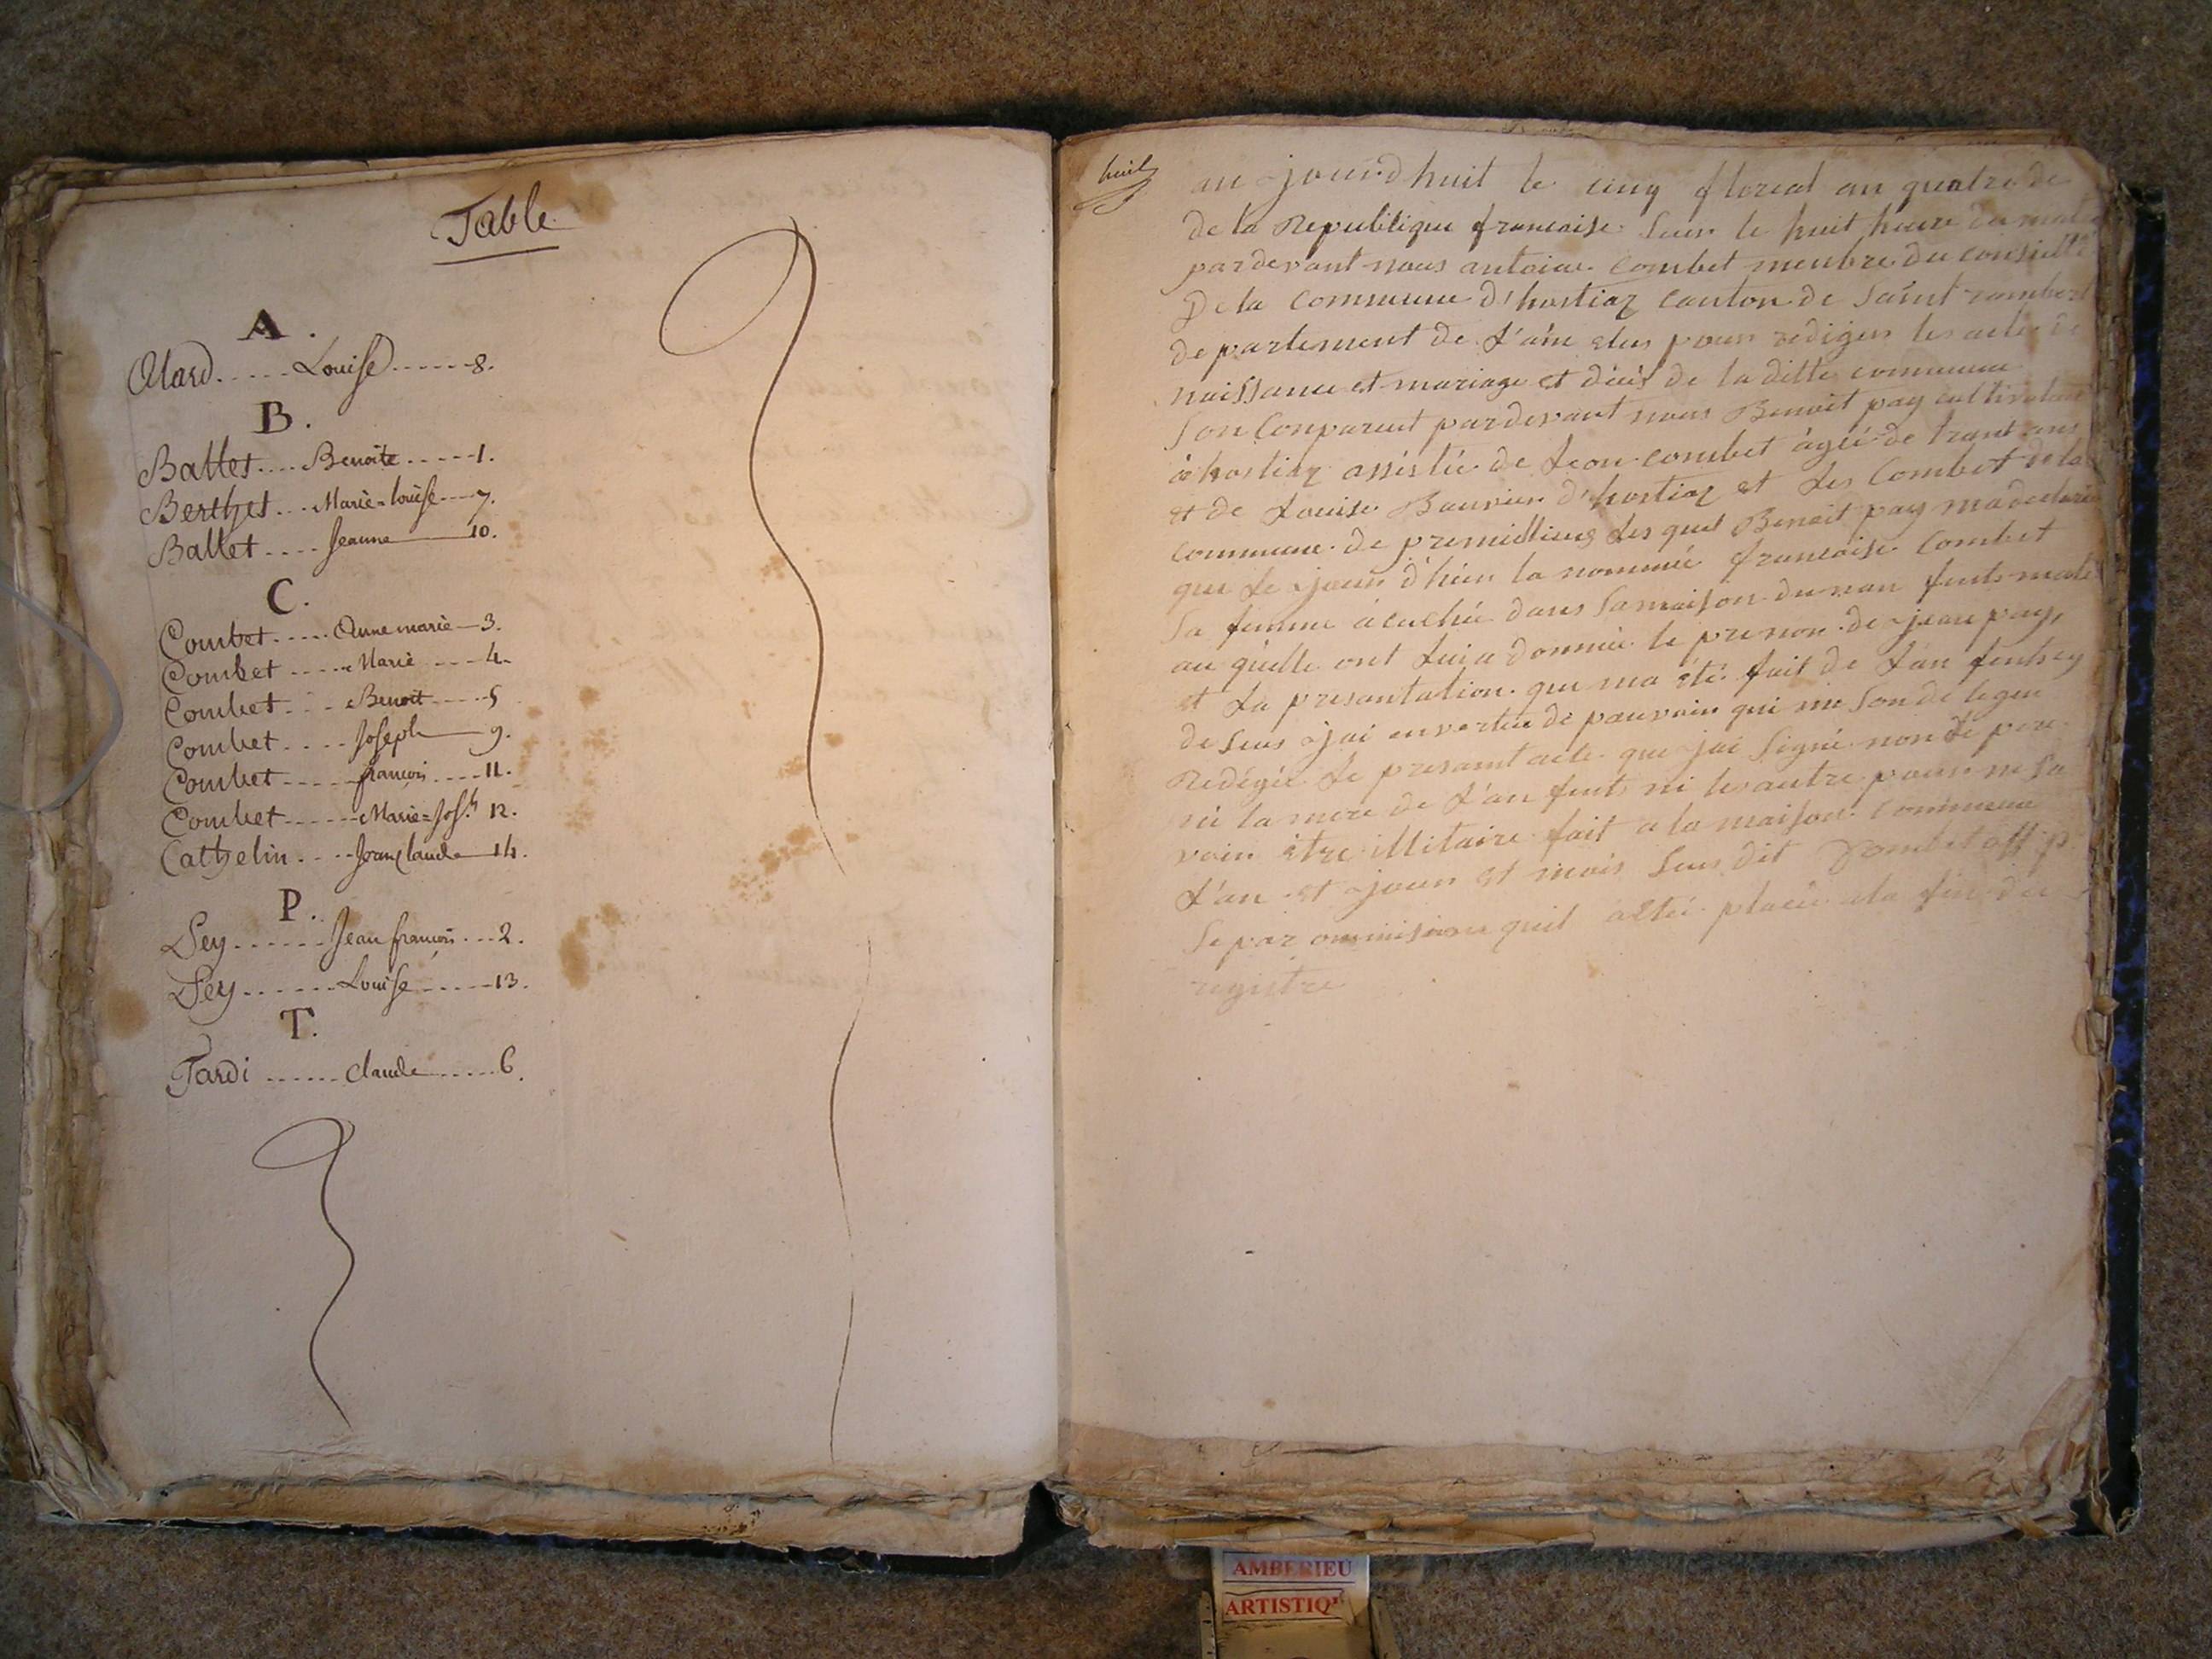 Table
A.
Alard..... Louise......8.
B.
Ballet.... Benoite.....1.
Berthet... Marie=louise...7.
Ballet.... Jeanne 10.
C.
Combet..... Anne marie 3.
Combet..... Marie....4.
Combet.... Benoit....5
Combet.... Joseph 9.
Combet..... françois....11.
Combet...... Marie=Jos.h 12.
Cathelin.... Jean Claude 14.
P.
Pey...... Jean françois...2.
Pey....... Louise.....13.
T.
Tardi...... Claude.....6.
huit
au jourdhuit le cinq floreal an quatre de
de la Republique francaise sur le huit heure du
par devant nous antoine combet menbre du
De la commune d'hostiaz canton de saint rambert
departement de L'ain elus pour rediger les acte de
naissance et mariage et décés de la ditte commune
son Conparut par devant nous Benoit pay
à hostiaz assistée de Leon combet àgéé de trant ans
et de Louise d'hostiaz et Les Combet de la
commune de premillieug Les quel Benoit pay ma
que Le jour d'hier la nommée francaise Combet
sa femme acuchée dans sa maison du nan fents male
au quelle ont Lui a donnée le prenon de jean pay,
et La presantation que ma été fait de L'an fents
de sus jai en vertue de pouvoir qui me son de legue
Redégée Le presant acte que jai signé non Le pere
ni la mere de L'an fents ni les autre pour ne sa
voir être illitaire fait a la maison commune
L'an et jour et mois sus dit Combet off p
se par ommision quil a été placée a la fin du
registre
AMBERIEU
ARTISTIQ